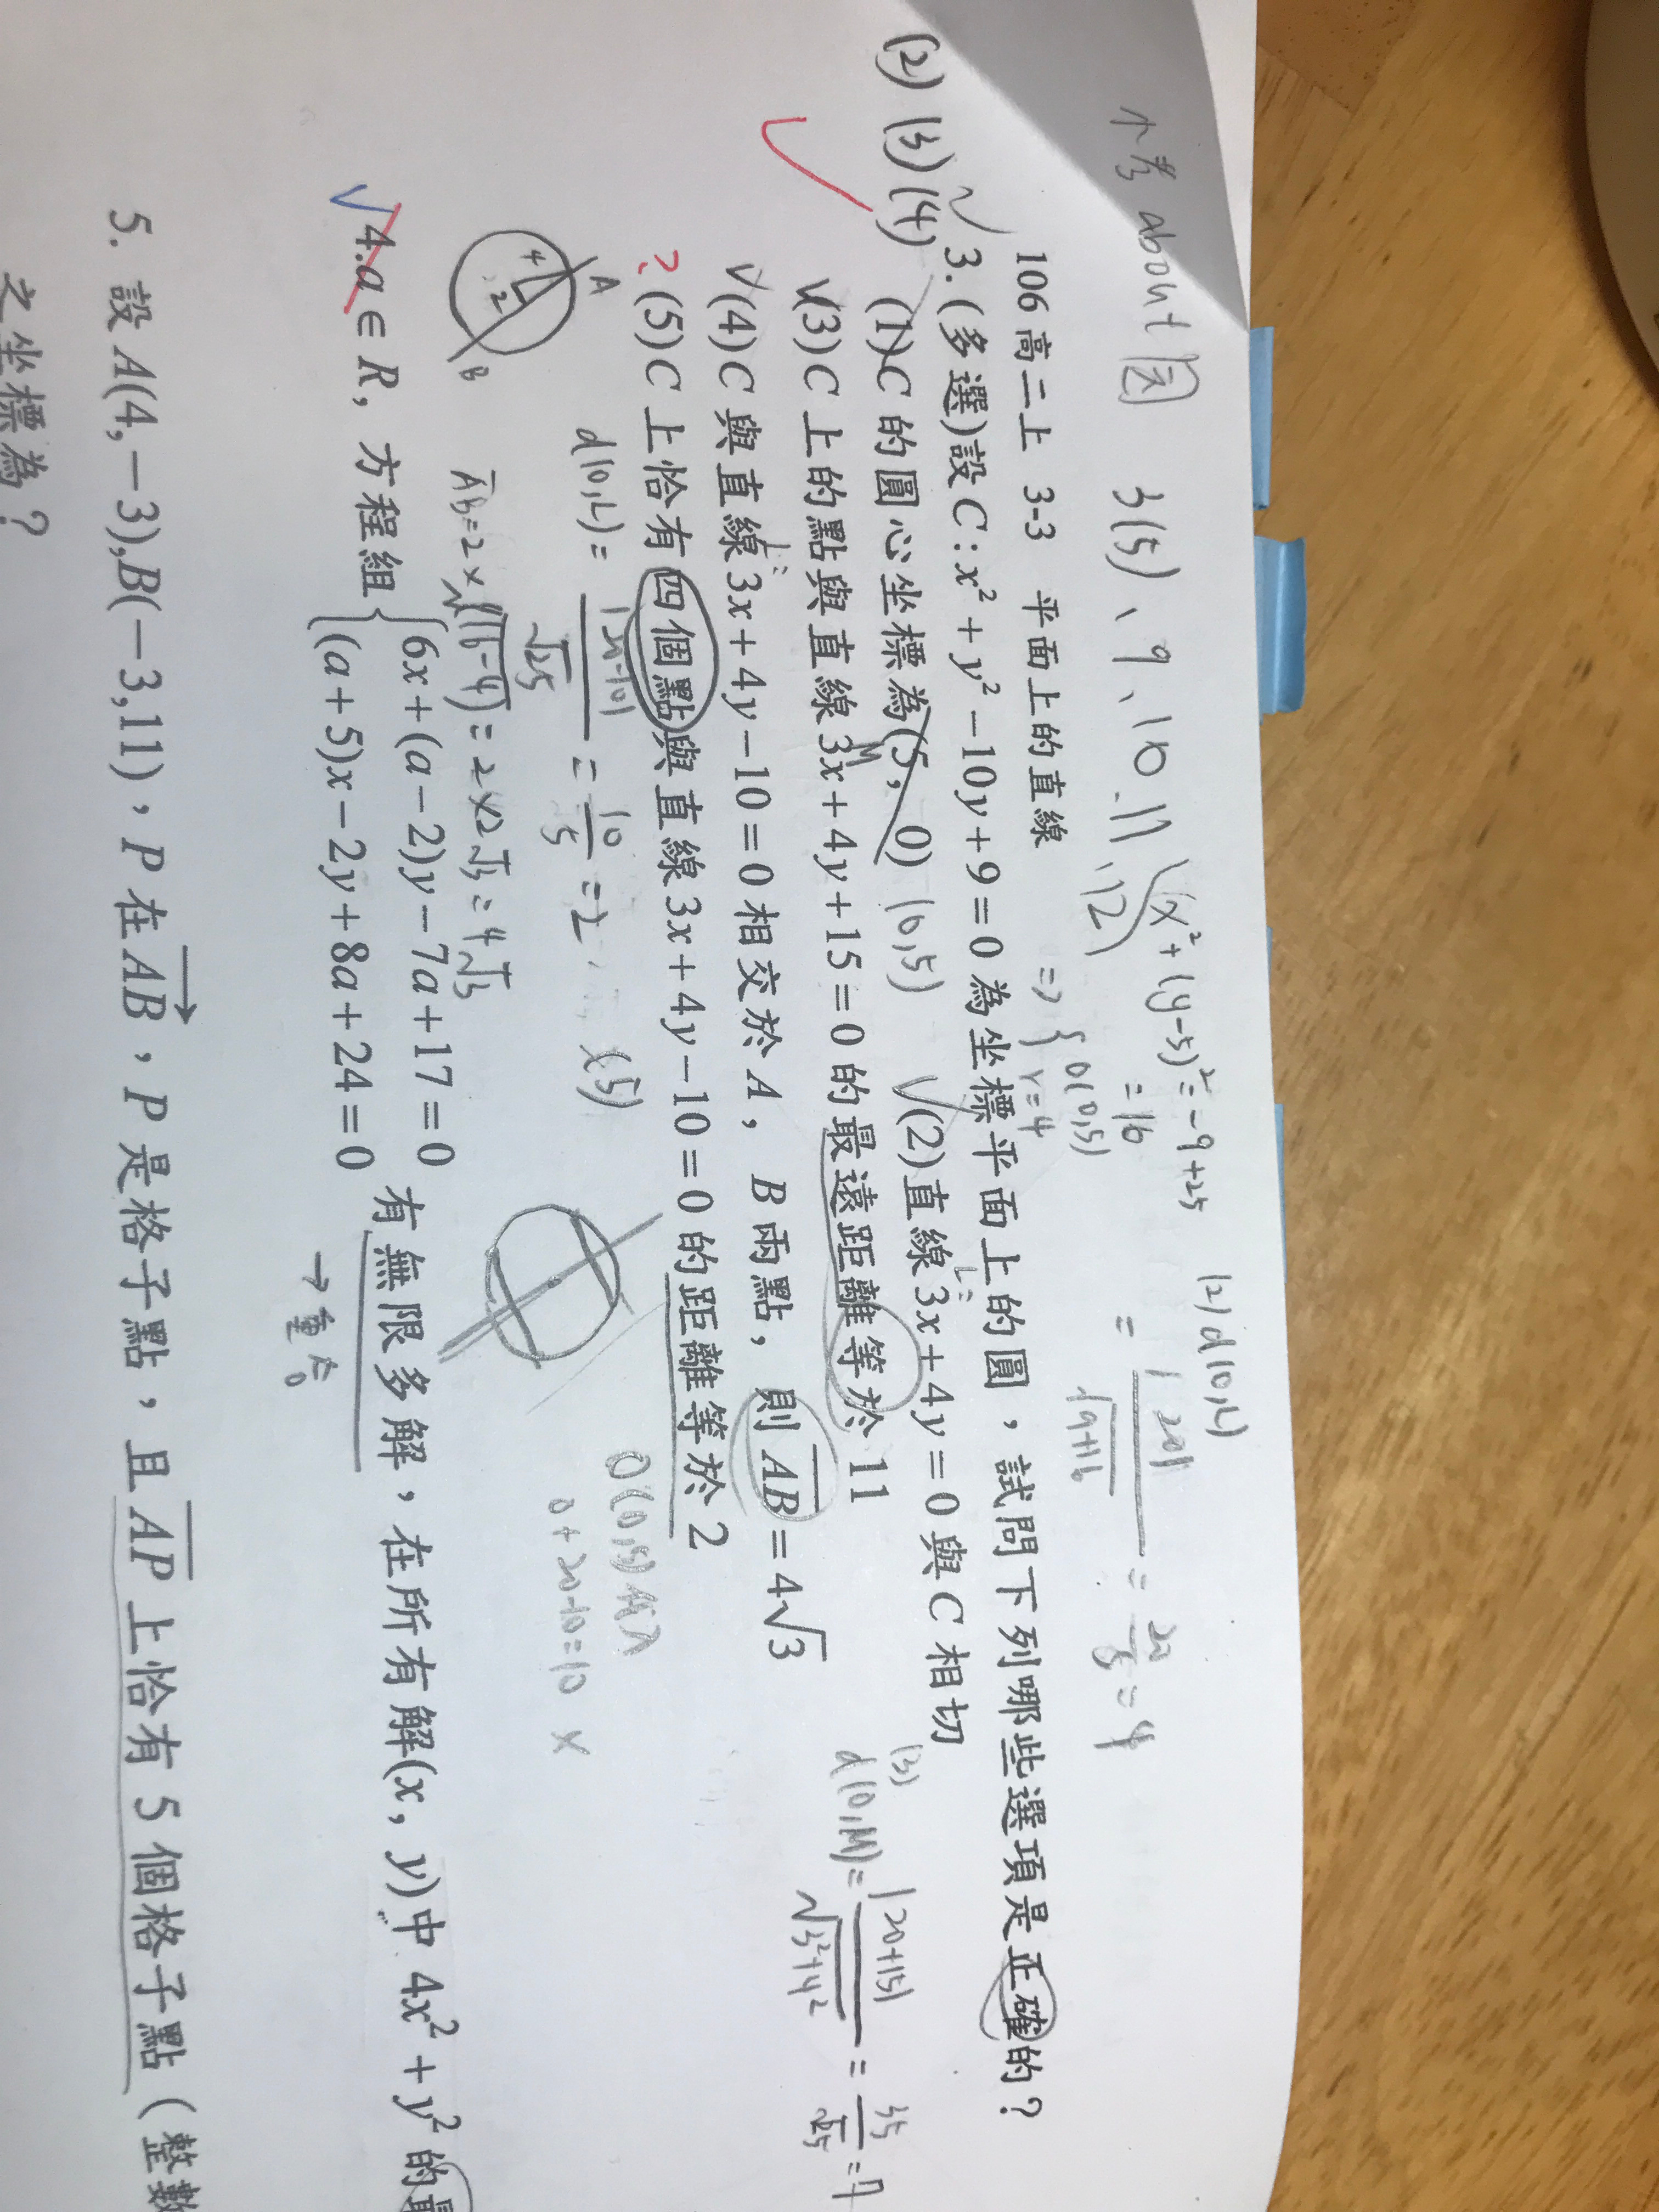 小考 about 圓 3(5)、9、10.11、12
x²+(y-5)²=-9+25
=16
=> { O(0,5)
r=4
(2) d(O,L)
= |20| / √9+16 = 20/5 = 4
106 高二上 3-3 平面上的直線
(2)(3)(4)
3.(多選)設 C:x²+y²−10y+9=0 為坐標平面上的圓，試問下列哪些選項是正確的？
(1)C 的圓心坐標為(5, 0) (0,5) (2)直線 3x+4y=0 與 C 相切
L:
(3)C 上的點與直線 3x+4y+15=0 的最遠距離等於 11
M
(3) d(O,M)= |20+15| / √3²+4² = 35/√25 = 7
(4)C 與直線 3x+4y−10=0 相交於 A，B 兩點，則 AB=4√3
L:
? (5)C 上恰有四個點與直線 3x+4y−10=0 的距離等於 2
A
4
2
B
d(O,L)= |20-10| / √25 = 10/5 = 2
(5)
AB=2×√(16-4) = 2×2√3 = 4√3
O(0,5)代入
0+20-10=10 ×
4.a∈R，方程組 {6x+(a−2)y−7a+17=0
(a+5)x−2y+8a+24=0 有無限多解，在所有解(x, y)中 4x²+y² 的最
→重合
5. 設 A(4,−3),B(−3,11)，P 在 AB，P 是格子點，且 AP 上恰有 5 個格子點（整數
之坐標為？